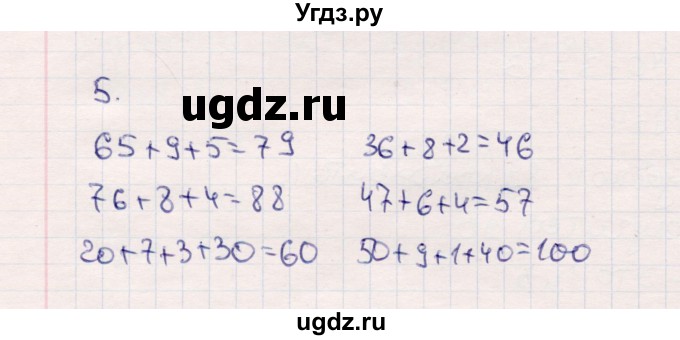 Угдз.ру
5.
ugdz.ru
65+9+5=79 36+8+2=46
76+8+4=88 47+6+4=57
20+7+3+30=60 50+9+1+40=100
ugdz.ru